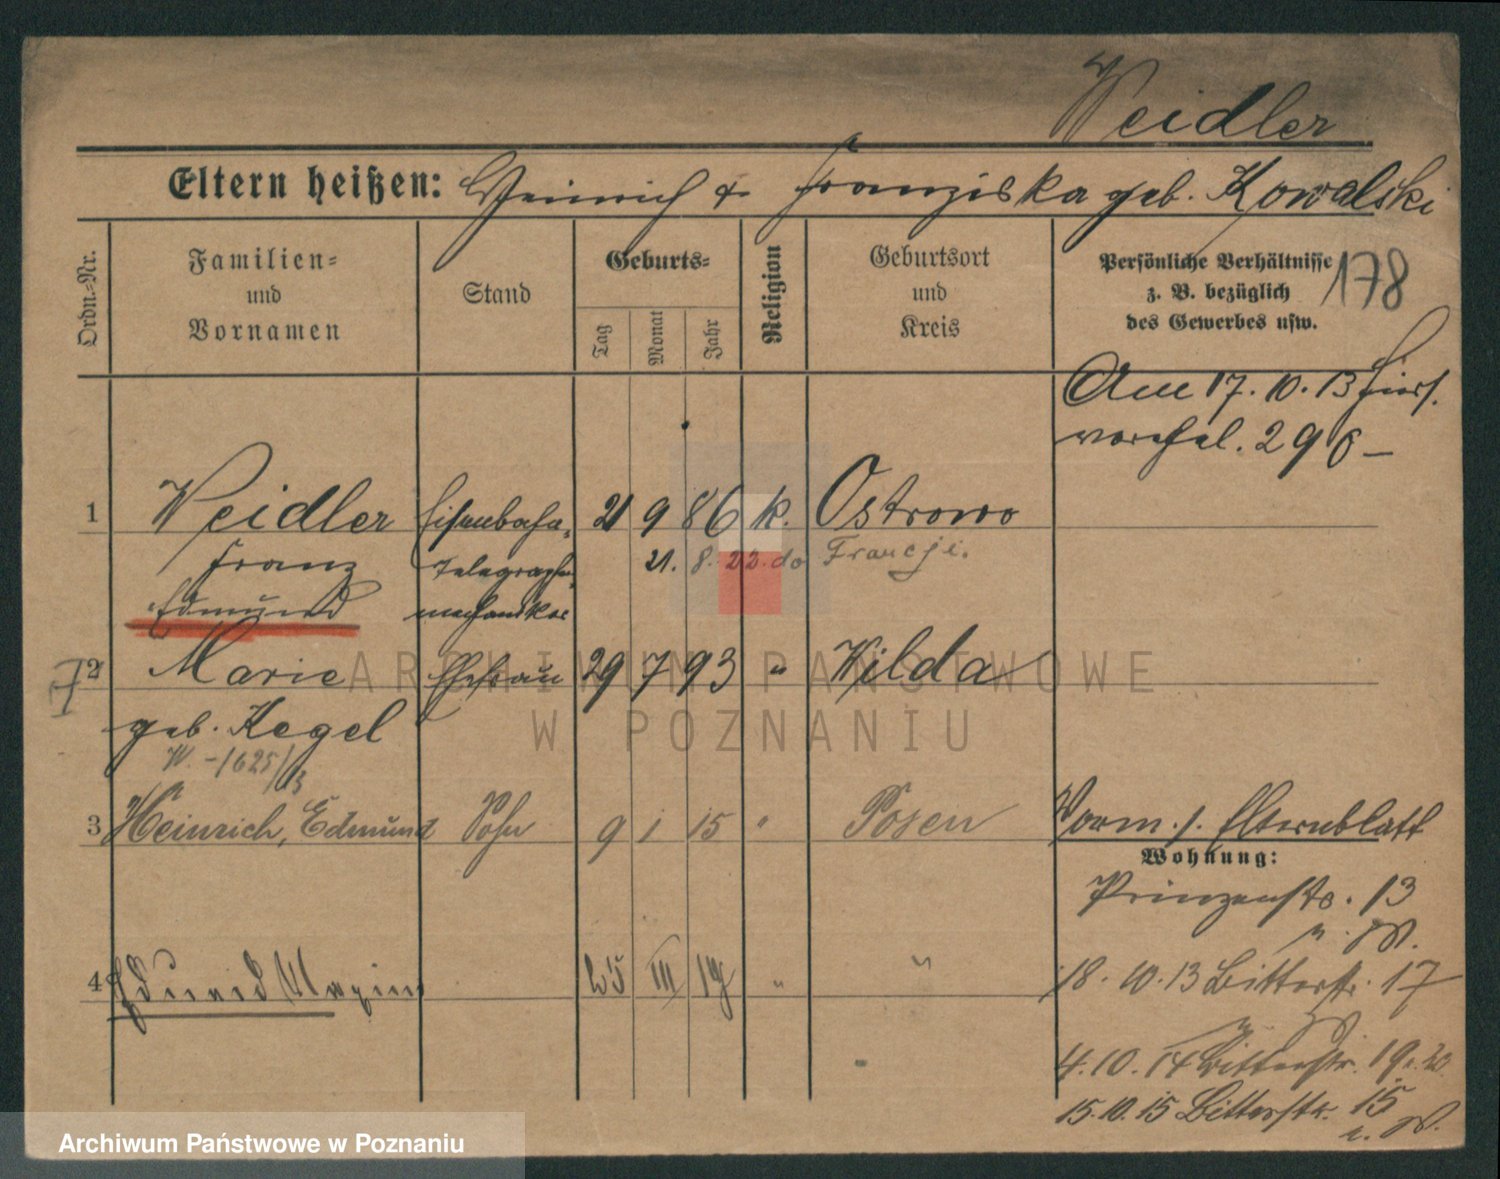 Weidler
Eltern heißen: Heinrich & Franziska geb. Kowalski
Ordn.-Nr.
Familien-
und
Vornamen
Stand
Geburts-
Tag
Monat
Jahr
Religion
Geburtsort
und
Kreis
Persönliche Verhältnisse
z. B. bezüglich
des Gewerbes usw.
178
Am 17. 10. 13
296
1 Weidler Eisenbahn- 21 9 86 k. Ostrowo
Franz Telegraphen- 21. 8. 22. do Francji.
Edmund mechaniker
2 Marie Ehefrau 29 7 93 " Wilda
geb. Kegel
3 Heinrich, Edmund Sohn 9 1 15 " Posen
Vorm. s. Elternblatt
Wohnung:
Prinzenstr. 13
4 Eduard 25 III 19 " "
18. 10. 13 Bitterstr. 17
4. 10. 14 Bitterstr. 19
15. 10. 15 Bitterstr. 15
ARCHIWUM PAŃSTWOWE
W POZNANIU
Archiwum Państwowe w Poznaniu